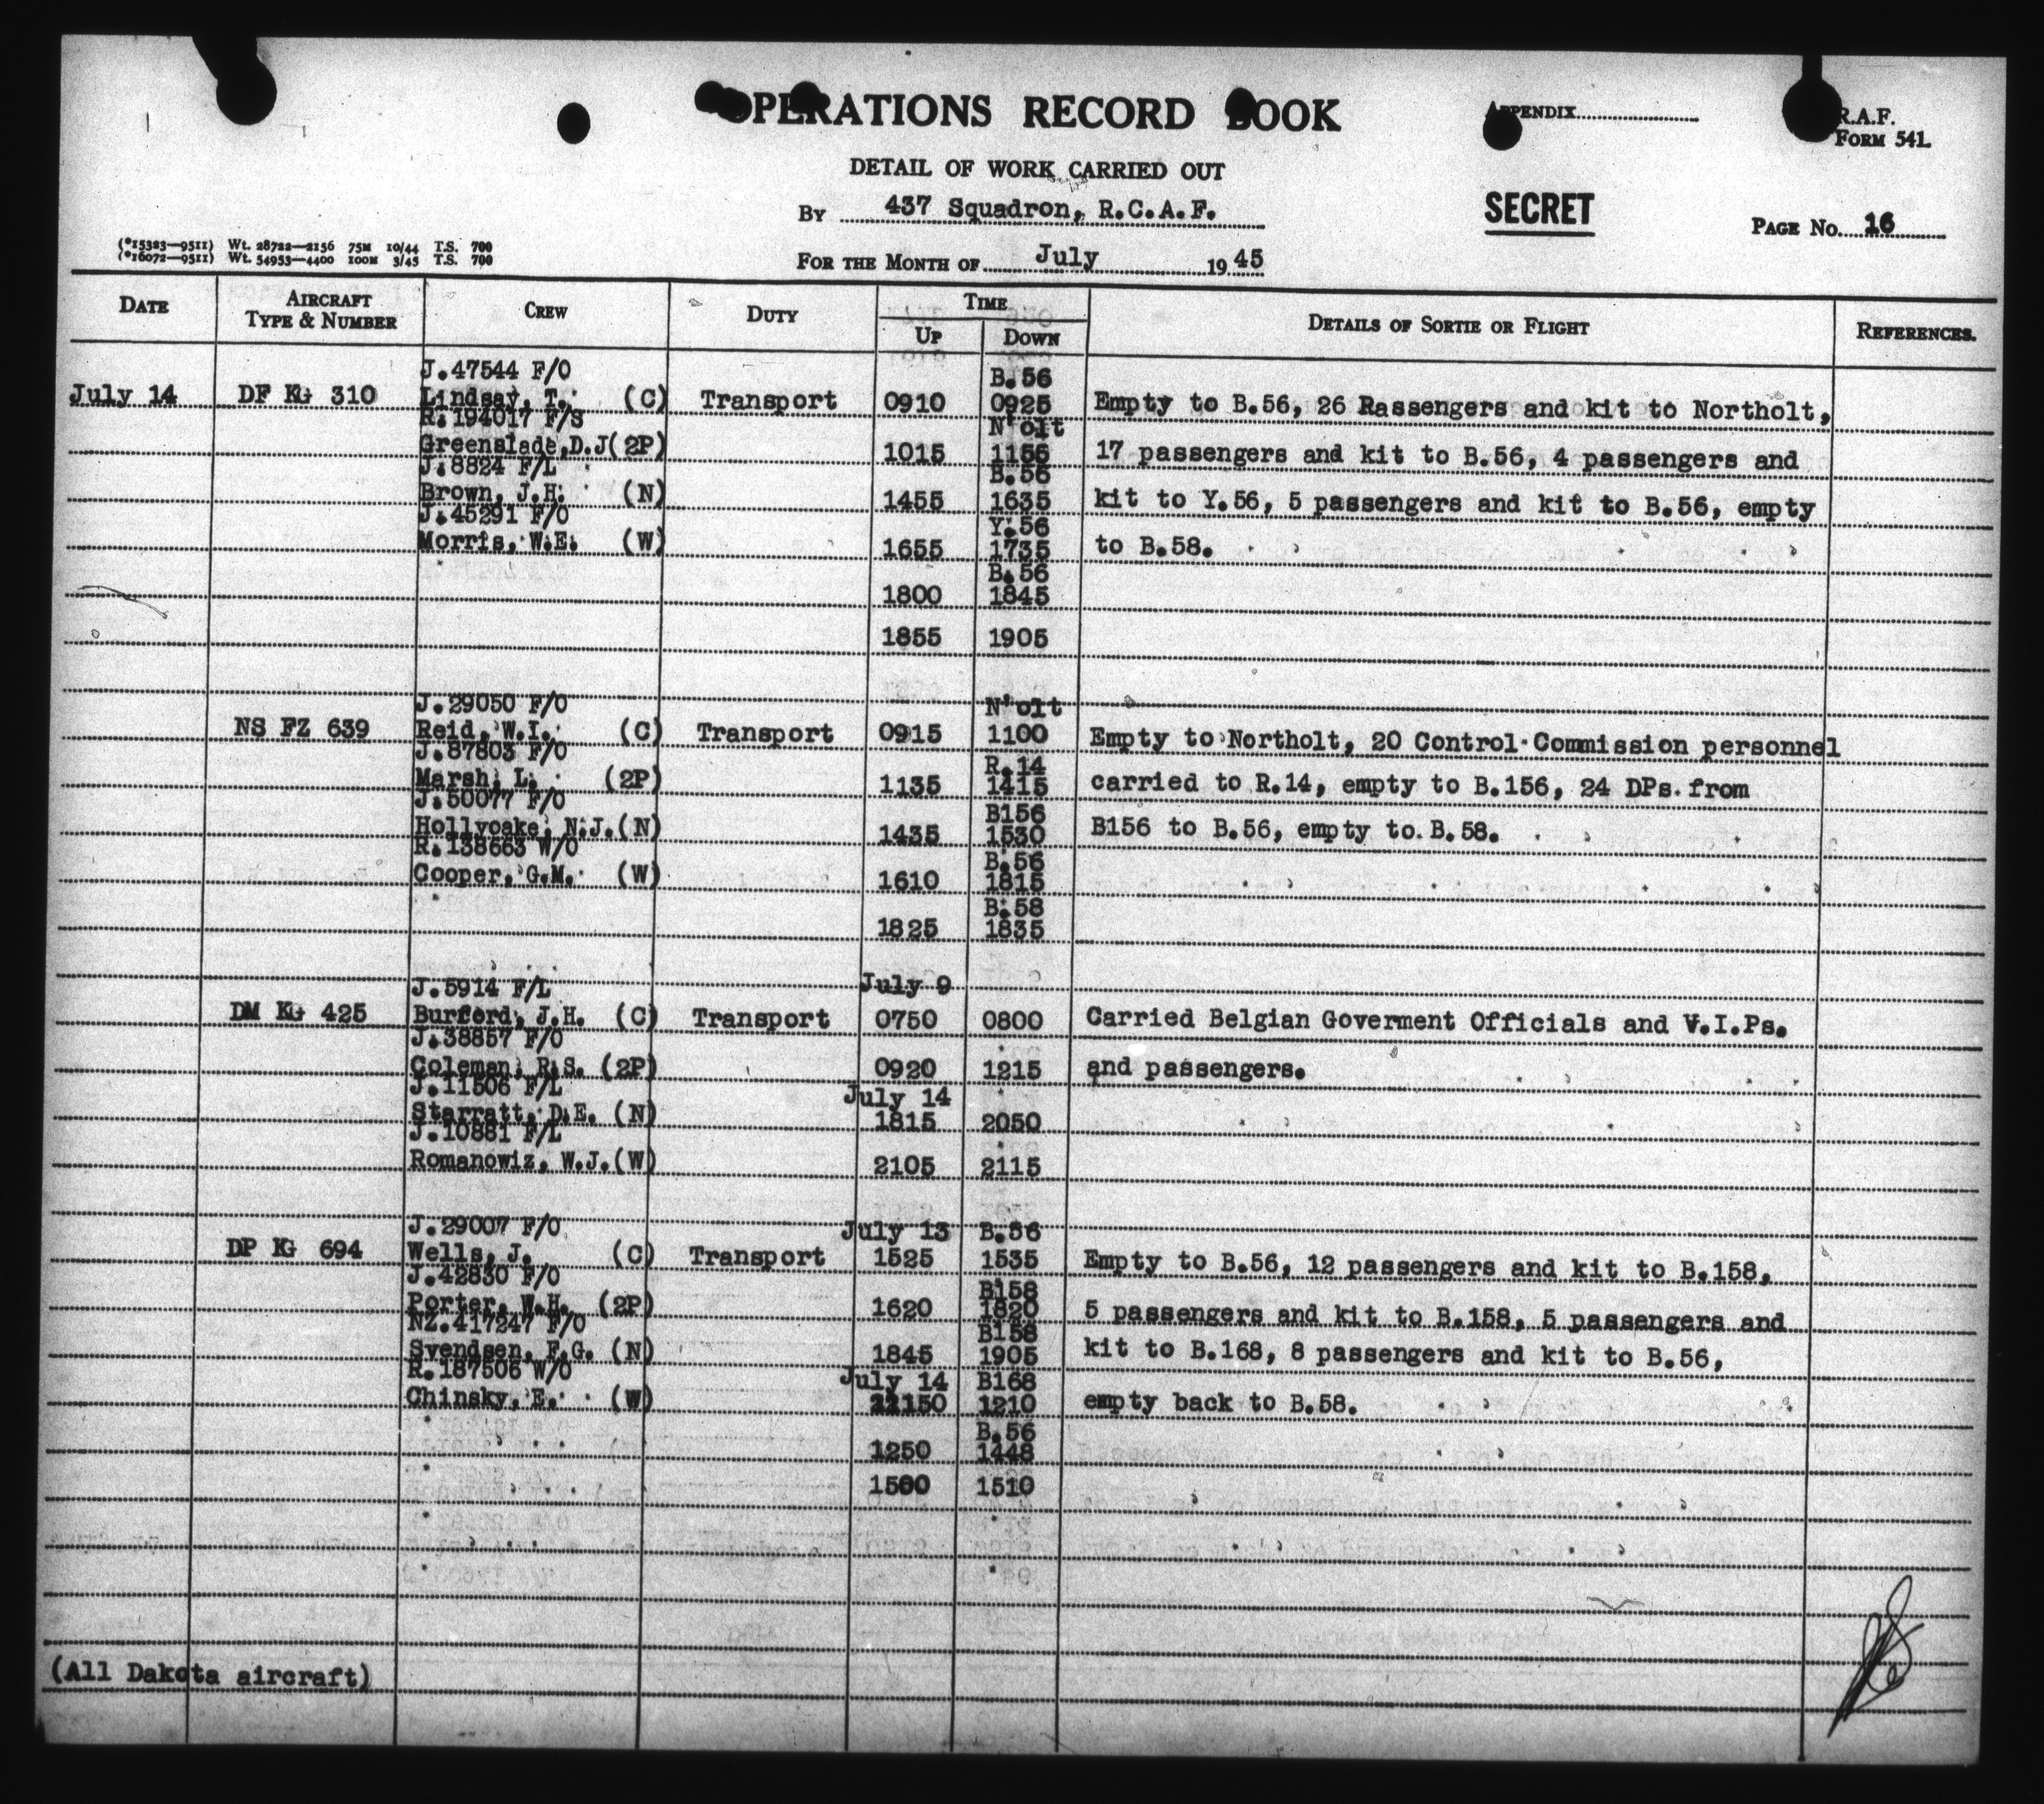 OPERATIONS RECORD BOOK
APPENDIX
R.A.F.
FORM 541.
DETAIL OF WORK CARRIED OUT
SECRET
BY 437 Squadron, R.C.A.F.
PAGE No. 16
(*15323—9511) Wt. 28722—2156 75M 10/44 T.S. 700
(*16072—9511) Wt. 54953—4400 100M 3/45 T.S. 700
FOR THE MONTH OF July 1945
DATE AIRCRAFT TYPE & NUMBER CREW DUTY TIME UP DOWN DETAILS OF SORTIE OR FLIGHT REFERENCES.
J.47544 F/O B.56
July 14 DF KG 310 Lindsay, T. (C) Transport 0910 0925 Empty to B.56, 26 Rassengers and kit to Northolt,
R.194017 F/S N'olt
Greenslade,D.J(2P) 1015 1155 17 passengers and kit to B.56, 4 passengers and
J.8824 F/L B.56
Brown, J.H. (N) 1455 1635 kit to Y.56, 5 passengers and kit to B.56, empty
J.45291 F/O Y.56
Morris, W.E. (W) 1655 1735 to B.58.
B.56
1800 1845
1855 1905
J.29050 F/O N'olt
NS FZ 639 Reid, W.I. (C) Transport 0915 1100 Empty to Northolt, 20 Control Commission personnel
J.87803 F/O R.14
Marsh, L. (2P) 1135 1415 carried to R.14, empty to B.156, 24 DPs from
J.50077 F/O B156
Hollyoake, N.J.(N) 1435 1530 B156 to B.56, empty to B.58.
R.138663 W/O B.56
Cooper, G.M. (W) 1610 1815
B.58
1825 1835
J.5914 F/L July 9
DM KG 425 Burford, J.H. (C) Transport 0750 0800 Carried Belgian Goverment Officials and V.I.Ps.
J.38857 F/O
Coleman, R.S. (2P) 0920 1215 and passengers.
J.11506 F/L July 14
Starratt, D.E. (N) 1815 2050
J.10881 F/L
Romanowiz, W.J.(W) 2105 2115
J.29007 F/O July 13 B.56
DP KG 694 Wells, J. (C) Transport 1525 1535 Empty to B.56, 12 passengers and kit to B.158,
J.42830 F/O B158
Porter, W.H. (2P) 1620 1820 5 passengers and kit to B.158, 5 passengers and
NZ.417247 F/O B158
Svendsen, F.G. (N) 1845 1905 kit to B.168, 8 passengers and kit to B.56,
R.187506 W/O July 14 B168
Chinsky, E. (W) 1150 1210 empty back to B.58.
B.56
1250 1448
1500 1510
(All Dakota aircraft)